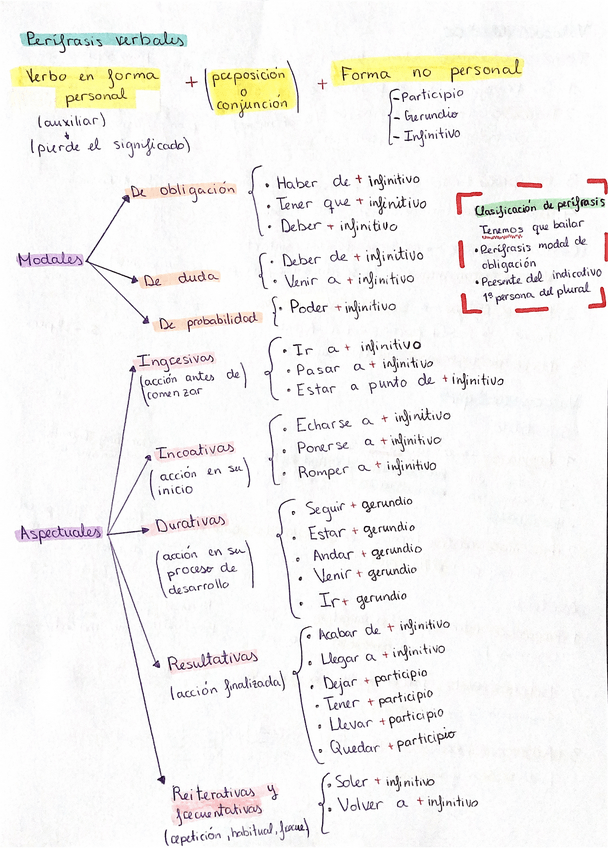 Perífrasis verbales
Verbo en forma personal + (preposición o conjunción) + Forma no personal
(auxiliar)
(pierde el significado)
- Participio
- Gerundio
- Infinitivo
Modales
De obligación
• Haber de + infinitivo
• Tener que + infinitivo
• Deber + infinitivo
De duda
• Deber de + infinitivo
• Venir a + infinitivo
De probabilidad
• Poder + infinitivo
Clasificación de perífrasis
Tenemos que bailar
• Perífrasis modal de
obligación
• Presente del indicativo
1ª persona del plural
Aspectuales
Ingresivas
(acción antes de
comenzar)
• Ir a + infinitivo
• Pasar a + infinitivo
• Estar a punto de + infinitivo
Incoativas
(acción en su
inicio)
• Echarse a + infinitivo
• Ponerse a + infinitivo
• Romper a + infinitivo
Durativas
(acción en su
proceso de
desarrollo)
• Seguir + gerundio
• Estar + gerundio
• Andar + gerundio
• Venir + gerundio
• Ir + gerundio
Resultativas
(acción finalizada)
• Acabar de + infinitivo
• Llegar a + infinitivo
• Dejar + participio
• Tener + participio
• Llevar + participio
• Quedar + participio
Reiterativas y
frecuentativas
(repetición, habitual, frecue)
• Soler + infinitivo
• Volver a + infinitivo